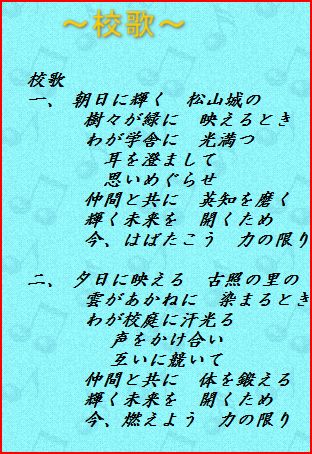 ～校歌～
校歌
一、 朝日に輝く 松山城の
樹々が緑に 映えるとき
わが学舎に 光満つ
耳を澄まして
思いめぐらせ
仲間と共に 英知を磨く
輝く未来を 開くため
今、はばたこう 力の限り
二、 夕日に映える 古照の里の
雲があかねに 染まるとき
わが校庭に汗光る
声をかけ合い
互いに競いて
仲間と共に 体を鍛える
輝く未来を 開くため
今、燃えよう 力の限り